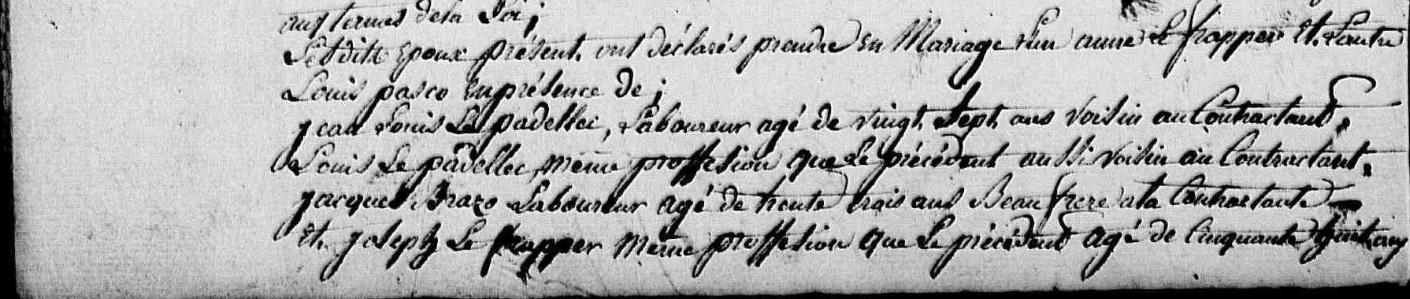 aux termes de la Loi;
Lesdits Epoux présent. ont déclarés prendre en Mariage l'un anne Le frapper Et. L'autre
Louis pasco En présence de;
jean Louis Le padellec, Laboureur agé de vingt Sept ans voisin au Contractant,
Louis Le padellec même proffession que Le précédent aussi voisin au Contractant,
jacques Laboureur agé de trente trois ans Beau frere a la Contractante
Et. joseph Le frapper même proffession que Le précédent agé de Cinquante huit ans